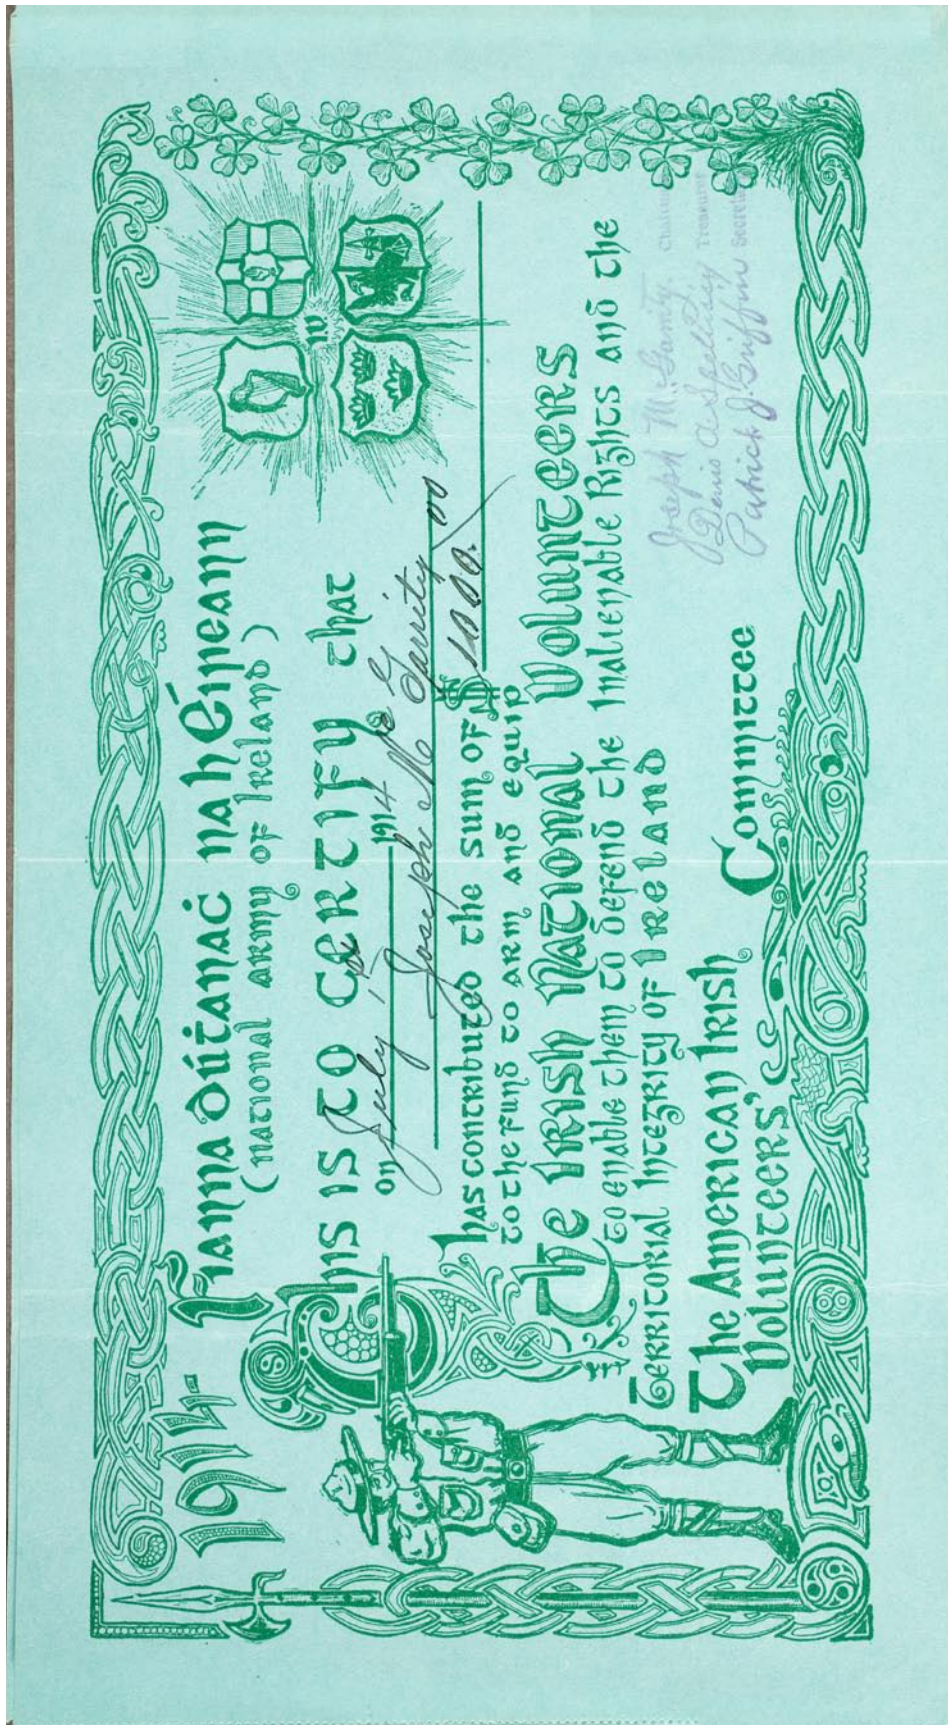 1914
Fianna dúṫanaċ na hÉireann
(National Army of Ireland)
This is to Certify that
on July 1st 1914
Joseph McGarrity
has contributed the sum of $1000.00
to the fund to arm and equip
The Irish National Volunteers
to enable them to defend the Inalienable Rights and the
Territorial Integrity of Ireland
The American Irish
Volunteers' Committee
Joseph McGarrity. Chairman
Denis A Spellissy Treasurer
Patrick J. Griffin Secretary